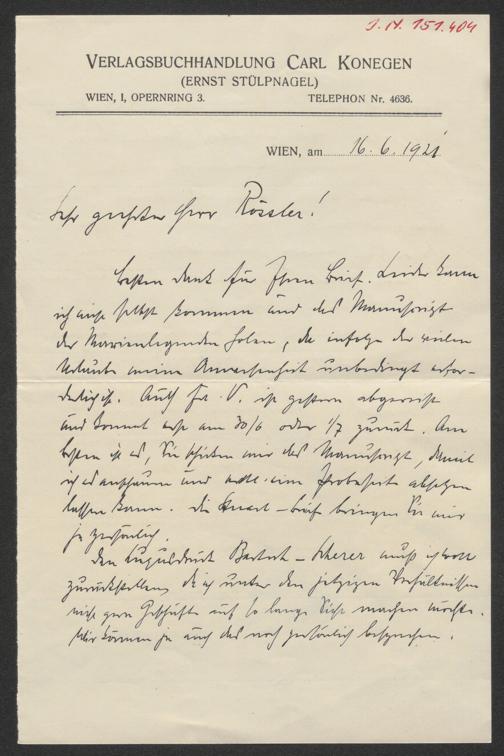 J. N. 151.404
VERLAGSBUCHHANDLUNG CARL KONEGEN
(ERNST STÜLPNAGEL)
WIEN, I, OPERNRING 3. TELEPHON Nr. 4636.
WIEN, am 16. 6. 1921
Sehr geehrter Herr Rössler!
Besten Dank für Ihren Brief. Leider kann
ich nicht selbst kommen und das Manuskript
der Marienlegenden holen, da infolge der vielen
Urlaube meine Anwesenheit unbedingt erfor-
derlich ist. Auch Fr. V. ist gestern abgereist
und kommt erst am 30/6 oder 1/7 zurück. Am
besten ist es, Sie schicken mir das Manuskript, damit
ich es anschauen und evtl. eine Probeseite absetzen
lassen kann. Die Briefe bringen Sie mir
ja persönlich.
Den Bartsch – Scherer muß ich wohl
zurückstellen, da ich unter den jetzigen Verhältnissen
nicht gern Geschäfte auf so lange Sicht machen möchte.
Wir können ja auch das noch persönlich besprechen.